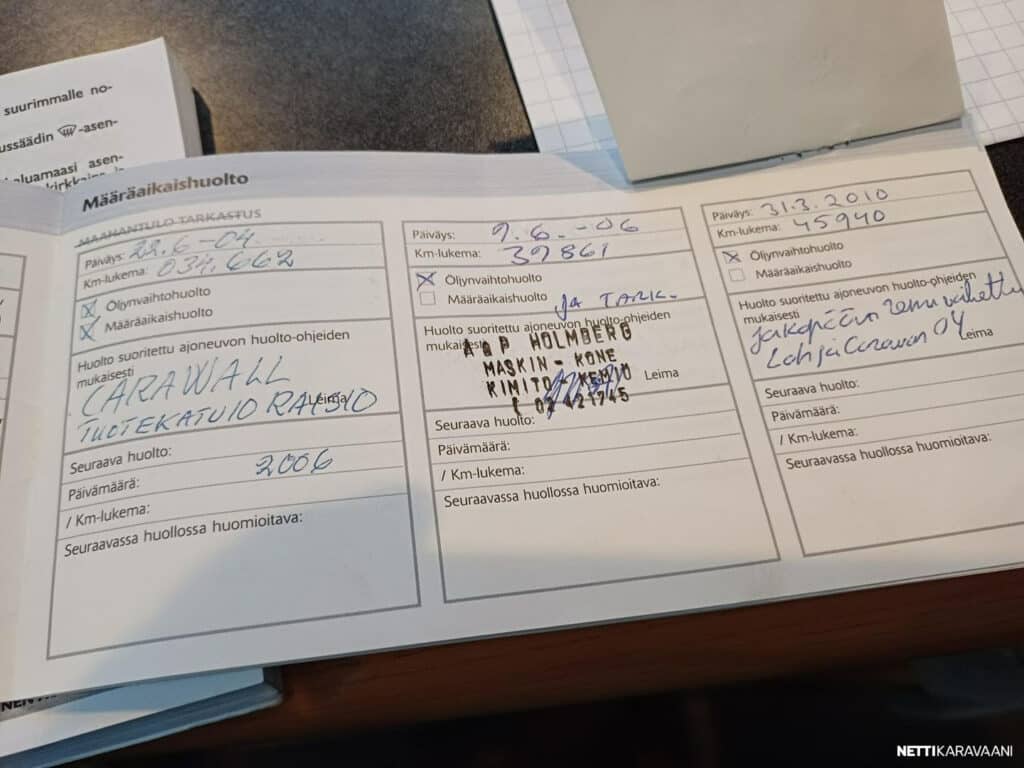 suurimmalle no-
ussäädin -asen-
aluamaasi asen-
Määräaikaishuolto
MAAHANTULO TARKASTUS
Päiväys: 22.6-04
Km-lukema: 034.662
Öljynvaihtohuolto
Määräaikaishuolto
Huolto suoritettu ajoneuvon huolto-ohjeiden
mukaisesti
CARAWALL
Leima
TUOTEKATU 10 RAISIO
Seuraava huolto:
Päivämäärä: 2006
/ Km-lukema:
Seuraavassa huollossa huomioitava:
Päiväys: 9.6.-06
Km-lukema: 39861
Öljynvaihtohuolto
Määräaikaishuolto ja TARK.
Huolto suoritettu ajoneuvon huolto-ohjeiden
mukaisesti
A & P HOLMBERG
MASKIN - KONE
KIMITO - KEMIÖ
Leima
02 421745
Seuraava huolto:
Päivämäärä:
/ Km-lukema:
Seuraavassa huollossa huomioitava:
Päiväys: 31.3.2010
Km-lukema: 45940
Öljynvaihtohuolto
Määräaikaishuolto
Huolto suoritettu ajoneuvon huolto-ohjeiden
mukaisesti
Jakopään remmi vaihettu
Lohja Caravan OY
Leima
Seuraava huolto:
Päivämäärä:
/ Km-lukema:
Seuraavassa huollossa huomioitava:
NETTIKARAVAANI